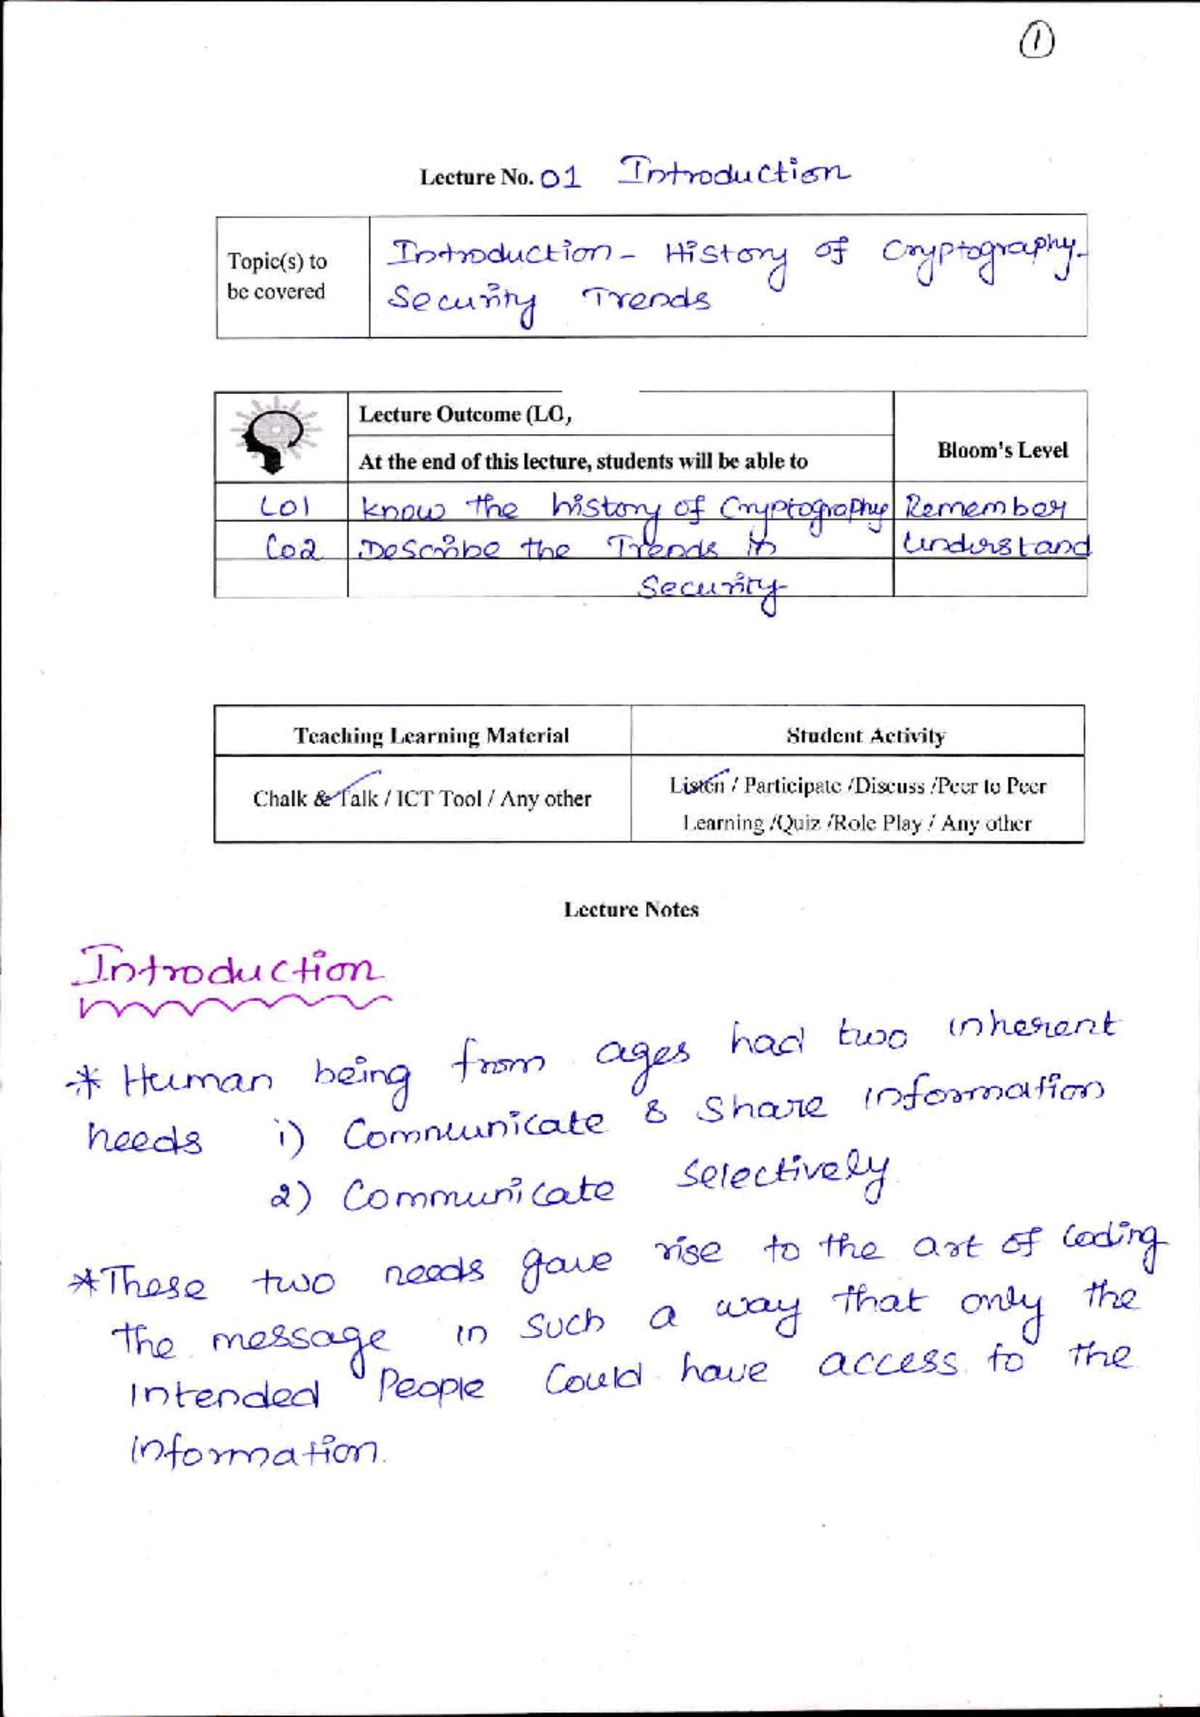 1
Lecture No. 01 Introduction
Topic(s) to be covered
Introduction - History of Cryptography-
Security Trends
Lecture Outcome (LO,
At the end of this lecture, students will be able to
Bloom's Level
LO1 know the history of Cryptography Remember
Co2 Describe the Trends in Understand
Security
Teaching Learning Material Student Activity
Chalk & Talk / ICT Tool / Any other
Listen / Participate /Discuss /Peer to Peer
Learning /Quiz /Role Play / Any other
Lecture Notes
Introduction
* Human being from ages had two inherent
needs 1) Communicate & Share information
2) Communicate Selectively
* These two needs gave rise to the art of Coding
the message in such a way that only the
intended People Could have access to the
information.